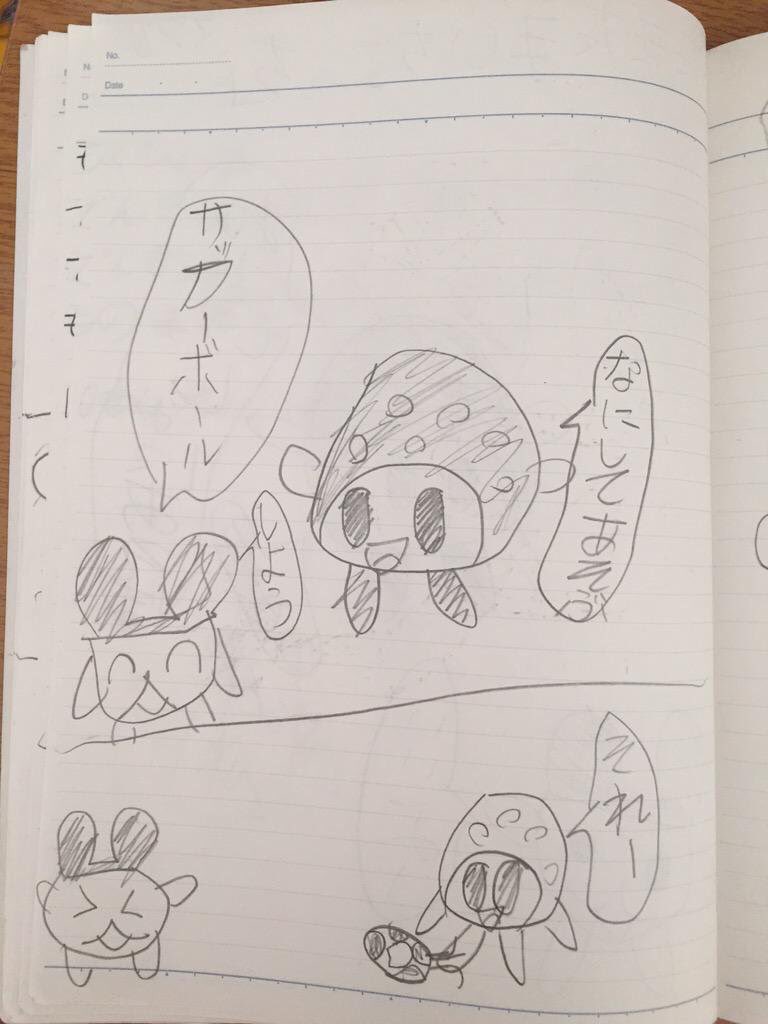 No.
Date
なにしてあそぶ
サッカーボール
しよう
それー